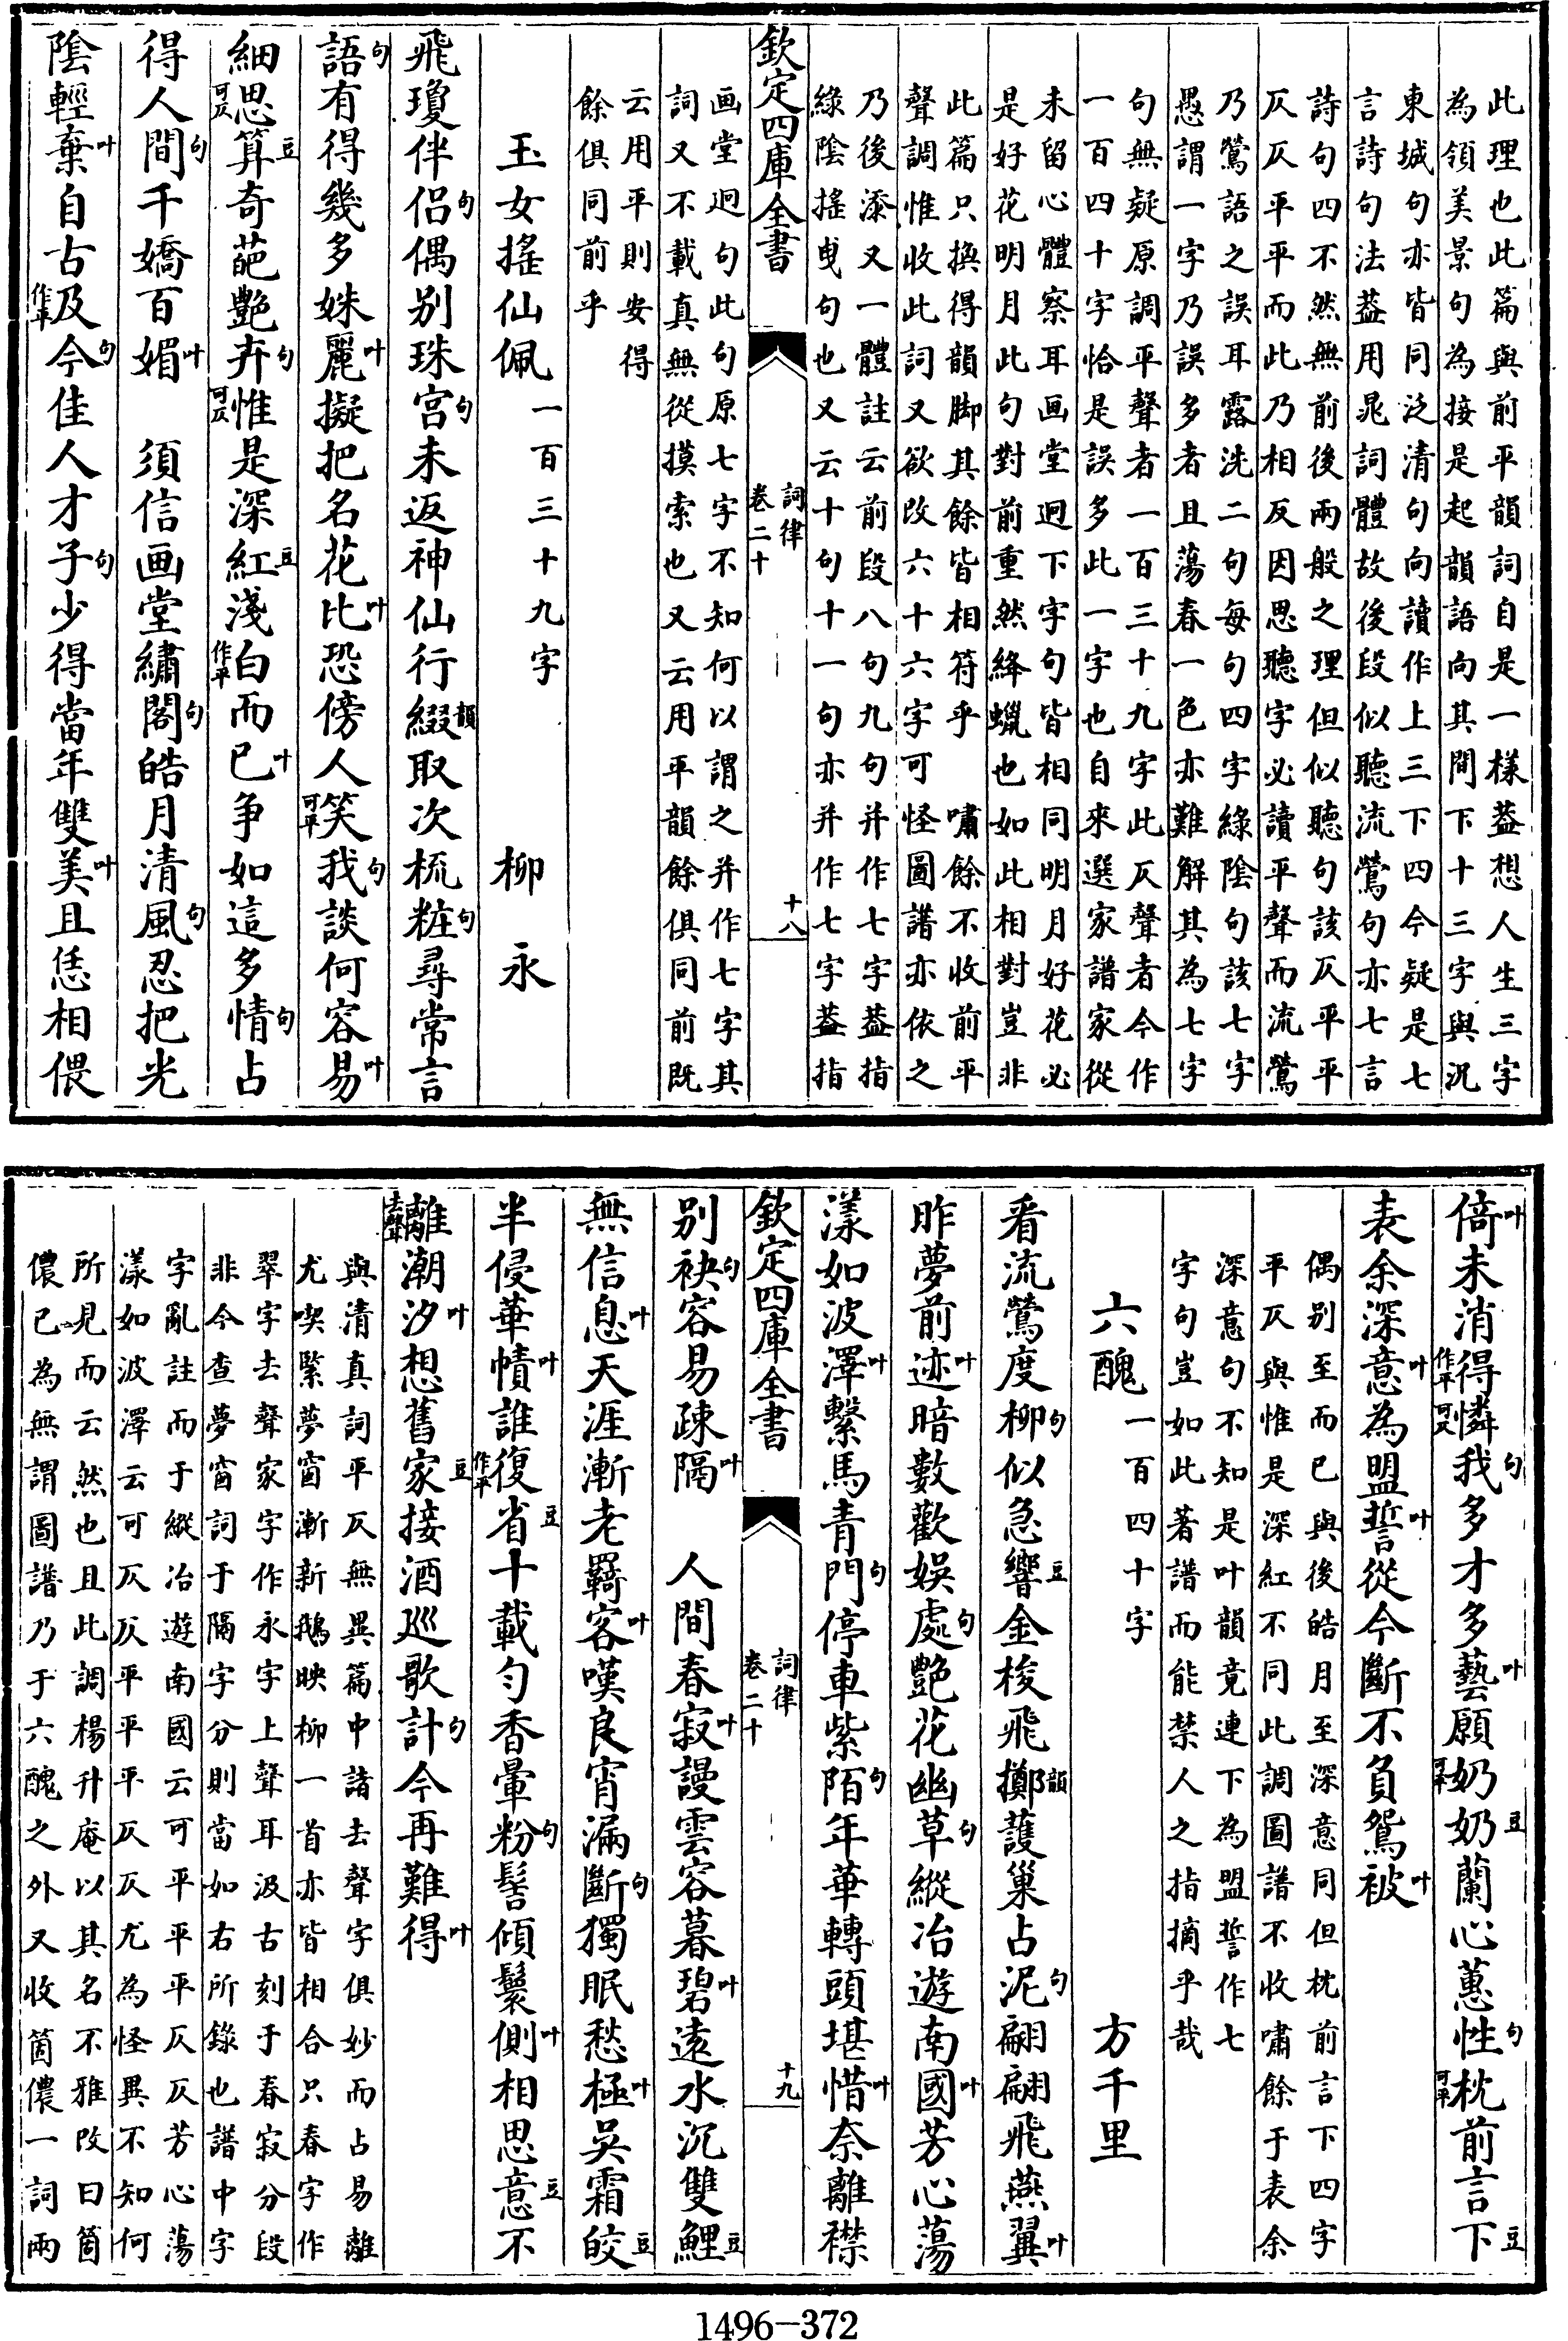 此理也此篇與前平韻詞自是一樣葢想人生三字
為領美景句為接是起韻語向其間下十三字與沉
東城句亦皆同泛清句向讀作上三下四今疑是七
言詩句法葢用晁詞體故後段似聽流鶯句亦七言
詩句四不然無前後兩般之理但似聽句該仄平平
仄仄平平而此乃相反因思聽字必讀平聲而流鶯
乃鶯語之誤耳露洗二句每句四字綠陰句該七字
愚謂一字乃誤多者且蕩春一色亦難解其為七字
句無疑原調平聲者一百三十九字此仄聲者今作
一百四十字恰是誤多此一字也自來選家譜家從
未留心體察耳画堂迥下字句皆相同明月好花必
是好花明月此句對前重然絳蠟也如此相對豈非
此篇只換得韻脚其餘皆相符乎 嘯餘不收前平
聲調惟收此詞又欲改六十六字可怪圖譜亦依之
乃後添又一體註云前段八句九句并作七字葢指
綠陰搖曳句也又云十句十一句亦并作七字葢指
欽定四庫全書 詞律 卷二十 十八
画堂迥句此句原七字不知何以謂之并作七字其
詞又不載真無從摸索也又云用平韻餘俱同前既
云用平則安得
餘俱同前乎
玉女搖仙佩 一百三十九字 柳永
飛瓊伴侶句偶別珠宮句未返神仙行綴韻取次梳粧句尋常言
語句有得幾多姝麗叶擬把名花比叶恐傍人笑可平我句談何容易叶
細思可仄算豆奇葩艷卉句惟可仄是深紅豆淺白作平而已叶争如這多情句占
得人間句千嬌百媚叶 須信画堂繡閣句皓月清風句忍把光
陰輕棄叶自古及作平今句佳人才子句少得當年雙美叶且恁相偎
倚叶未消得作平憐可仄我句多才多藝叶願奶可平奶豆蘭心蕙性句枕可平前言下豆
表余深意叶為盟誓叶從今斷不負鴛被叶
偶別至而已與後皓月至深意同但枕前言下四字
平仄與惟是深紅不同此調圖譜不收嘯餘于表余
深意句不知是叶韻竟連下為盟誓作七
字句豈如此著譜而能禁人之指摘乎哉
六醜 一百四十字 方千里
看流鶯度柳句似急響豆金梭飛擲韻護巢占泥句翩翩飛燕翼叶
昨夢前迹叶暗數歡娛處句艷花幽草句縱冶遊南國叶芳心蕩
漾如波澤叶繫馬青門句停車紫陌句年華轉頭堪惜叶奈離襟
欽定四庫全書 詞律 卷二十 十九
別袂句容易疎隔叶 人間春寂叶謾雲容暮碧叶遠水沉雙鯉豆
無信息叶天涯漸老羇客叶嘆良宵漏斷句獨眠愁極叶吳霜皎豆
半侵華幘叶誰復作平省豆十載勻香暈粉句髻傾鬟側叶相思意豆不
離去聲潮汐叶想舊家豆接酒巡歌計句今再難得叶
與清真詞平仄無異篇中諸去聲字俱妙而占易離
尤喫緊夢窗漸新鵝映柳一首亦皆相合只春字作
翠字去聲家字作永字上聲耳汲古刻于春寂分段
非今查夢窗詞于隔字分則當如右所錄也譜中字
字亂註而于縱冶遊南國云可平平平仄仄芳心蕩
漾如波澤云可仄仄平平平仄仄尤為怪異不知何
所見而云然也且此調楊升庵以其名不雅改曰箇
儂已為無謂圖譜乃于六醜之外又收箇儂一詞兩
1496-372